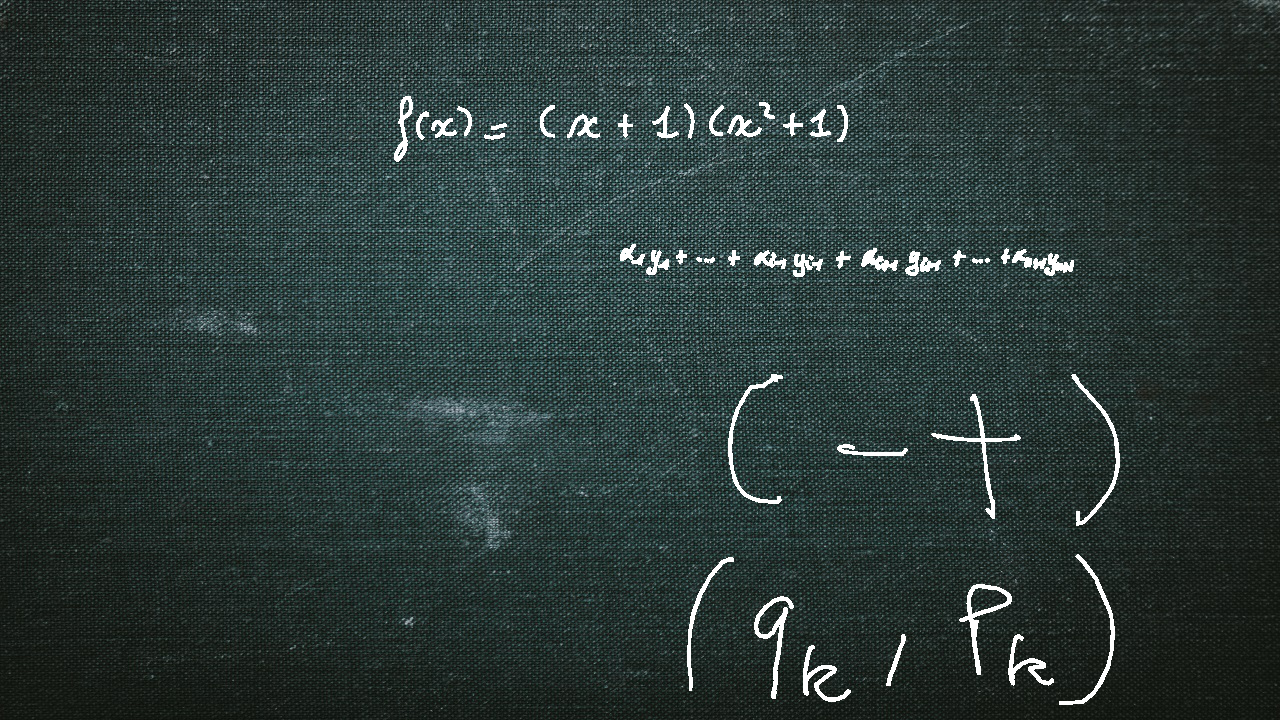 f(x) = (x + 1)(x²+1)
α₁y₁ + ... + αᵢ₋₁yᵢ₋₁ + αᵢ₊₁yᵢ₊₁ + ... + αₙ₊₁yₙ₊₁
( − + )
(qₖ, pₖ)